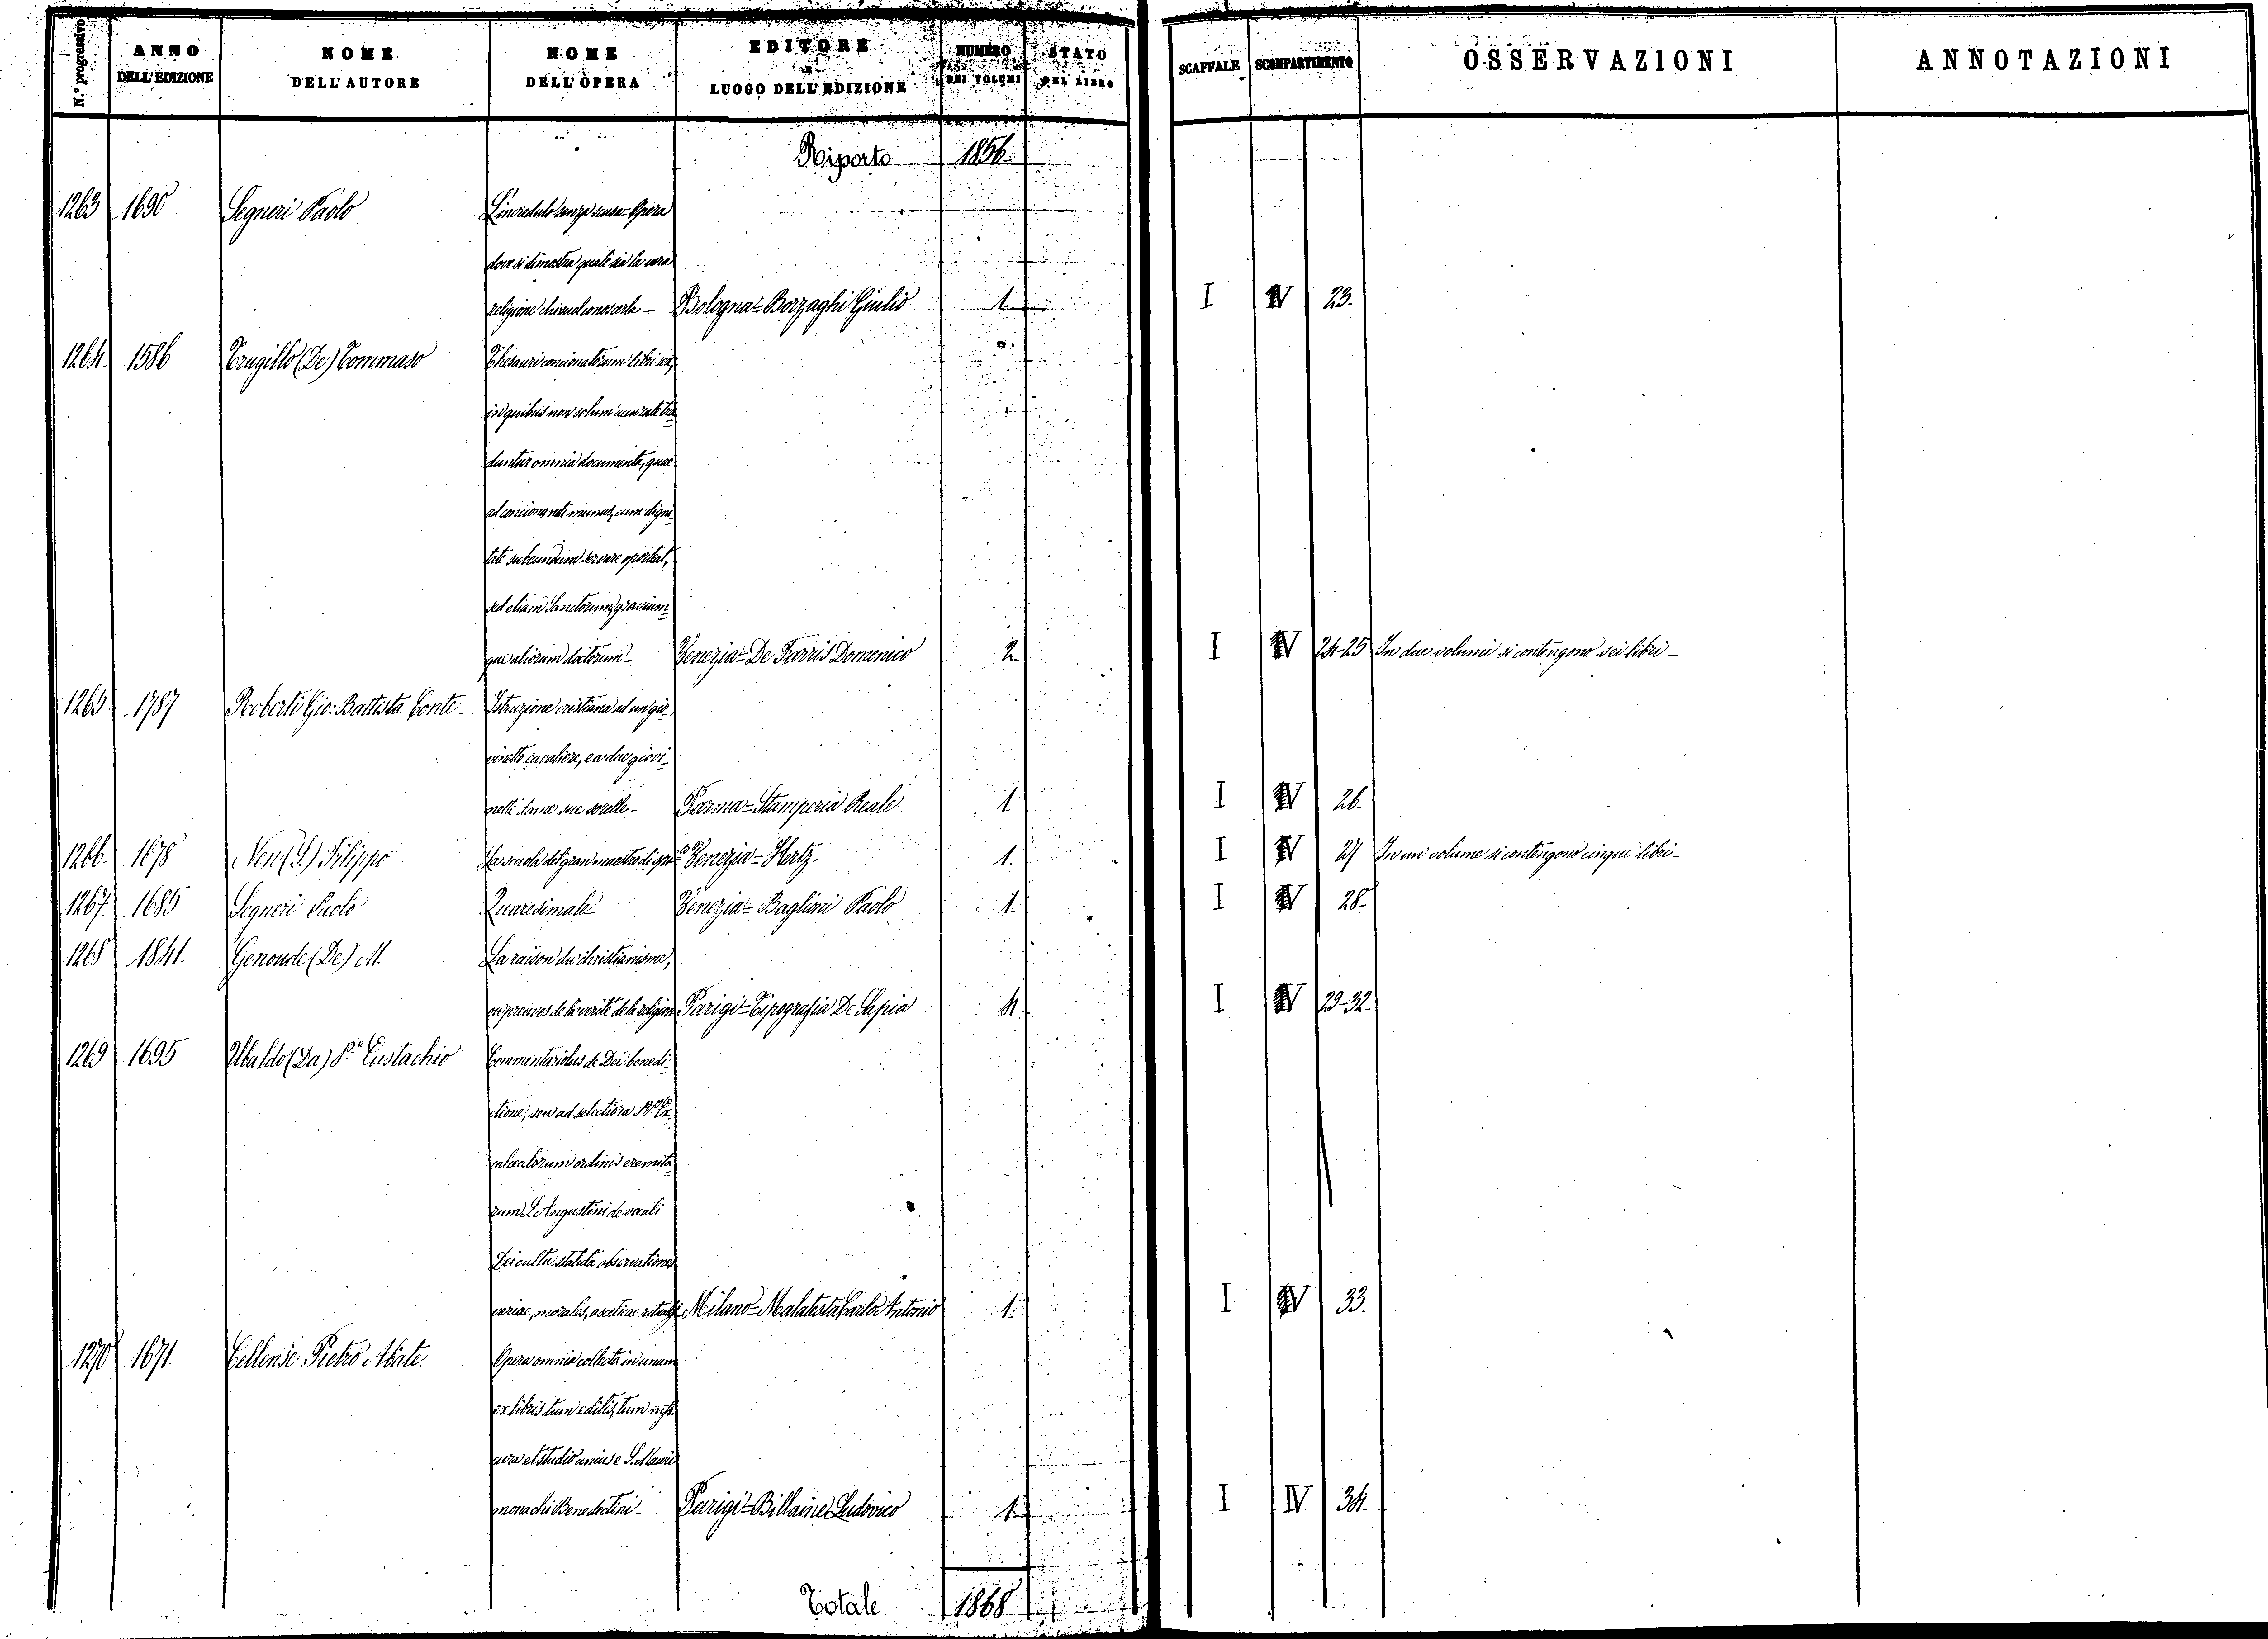 N.º progressivo
ANNO DELL'EDIZIONE
NOME DELL'AUTORE
NOME DELL'OPERA
EDITORE E LUOGO DELL'EDIZIONE
NUMERO DEI VOLUMI
STATO DEL LIBRO
SCAFFALE
SCOMPARTIMENTO
OSSERVAZIONI
ANNOTAZIONI
Riporto 1856.
1263 1690 Segneri Paolo L'incredulo senza scusa = Opera
dove si dimostra quale sia la vera
religione chi vuol conoscerla - Bologna = Borzaghi Giulio 1. I IV 23.
1264. 1586 Trugillo (De) Tommaso Thesauri concionatorum libri sex,
in quibus non solum accurate tra=
duntur omnia documenta, quae
ad concionandi munus, cum digni=
tate subeundum servare oporteat,
sed etiam Sanctorum, gravium=
que aliorum doctorum - Venezia = De Farris Domenico 2. I IV 24-25 In due volumi si contengono sei libri -
1265 1787 Roberti Gio: Battista Conte - Istruzione cristiana ad un gio=
vinetto cavaliere, e a due giovi=
nette dame sue sorelle - Parma = Stamperia Reale 1 I IV 26.
1266. 1678 Neri (S.) Filippo La scuola del gran maestro di Venezia = Hertz. 1. I IV 27 In un volume si contengono cinque libri -
1267. 1685 Segneri Paolo Quaresimale Venezia = Baglioni Paolo 1. I IV 28.
1268 1841. Genoude (De) M. La raison du christianisme,
ou preuves de la verité de la religion Parigi = Tipografia De Sapia 4. I IV 29-32.
1269 1695 Ubaldo (Da) S. Eustachio Commentariolus de Dei benedi=
ctione, seu ad selectiora
calceatorum ordinis eremita=
rum S. Augustini de vocali
Dei cultu statuta observationes
variae, morales, asceticae Milano = Malatesta Carlo Antonio 1. I IV 33.
1270 1671. Cellense Pietro Abate. Opera omnia collecta in unum
ex libris tum editis, tum mss.
cura et studio unius e S. Mauri
monachi Benedectini - Parigi = Billaine Ludovico 1. I IV 34.
Totale 1868